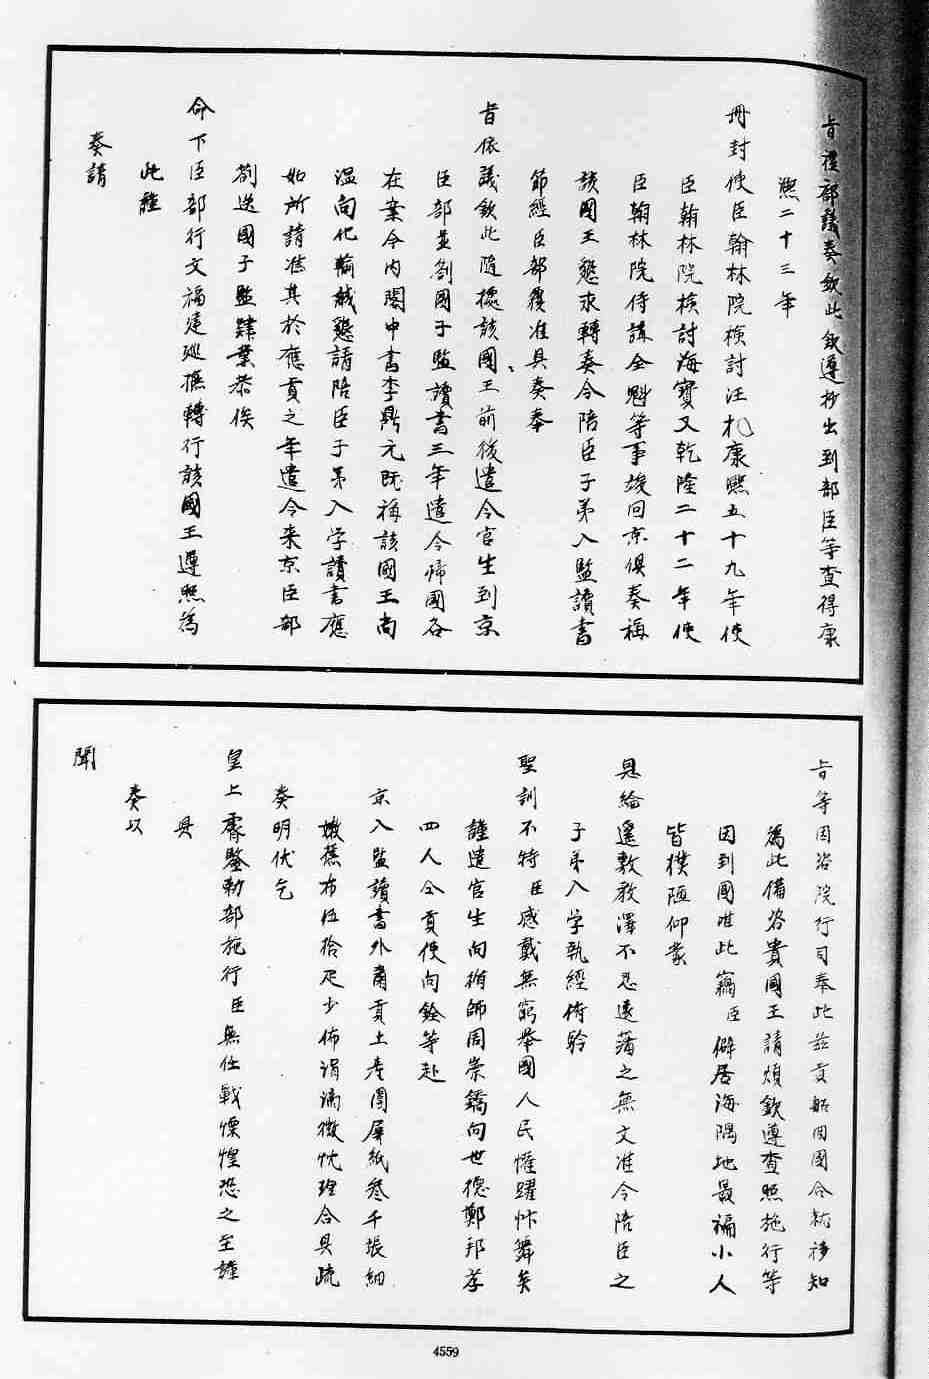 旨禮部議奏欽此欽遵抄出到部臣等查得康
熙二十三年
冊封使臣翰林院檢討汪札康熙五十九年使
臣翰林院檢討海寶又乾隆二十二年使
臣翰林院侍講全魁等事竣回京俱奏稱
該國王懇求轉奏令陪臣子弟入監讀書
節經臣部覆准具奏奉
旨依議欽此隨據該國王前後遣令官生到京
臣部並劄國子監讀書三年遣令歸國各
在案今內閣中書李鼎元既稱該國王尚
溫向化輸誠懇請陪臣子弟入學讀書應
如所請准其於應貢之年遣令來京臣部
劄送國子監肄業恭俟
命下臣部行文福建巡撫轉行該國王遵照為
此謹
奏請
旨等因咨院行司奉此茲貢船回國合就移知
為此備咨貴國王請煩欽遵查照施行等
因到國准此竊臣僻居海隅地最褊小人
皆樸陋仰蒙
恩綸遙敷教澤不忍遠藩之無文准令陪臣之
子弟入學執經俯聆
聖訓不特臣感戴無窮舉國人民懽躍忭舞矣
謹遣官生向循師周崇鐈向世德鄭邦孝
四人令貢使向銓等赴
京入監讀書外肅貢土產圍屏紙叁千張細
嫩蕉布伍拾疋少佈涓滴微忱理合具疏
奏明伏乞
皇上睿鑒勅部施行臣無任戰慄惶恐之至謹
具
奏以
聞
4559